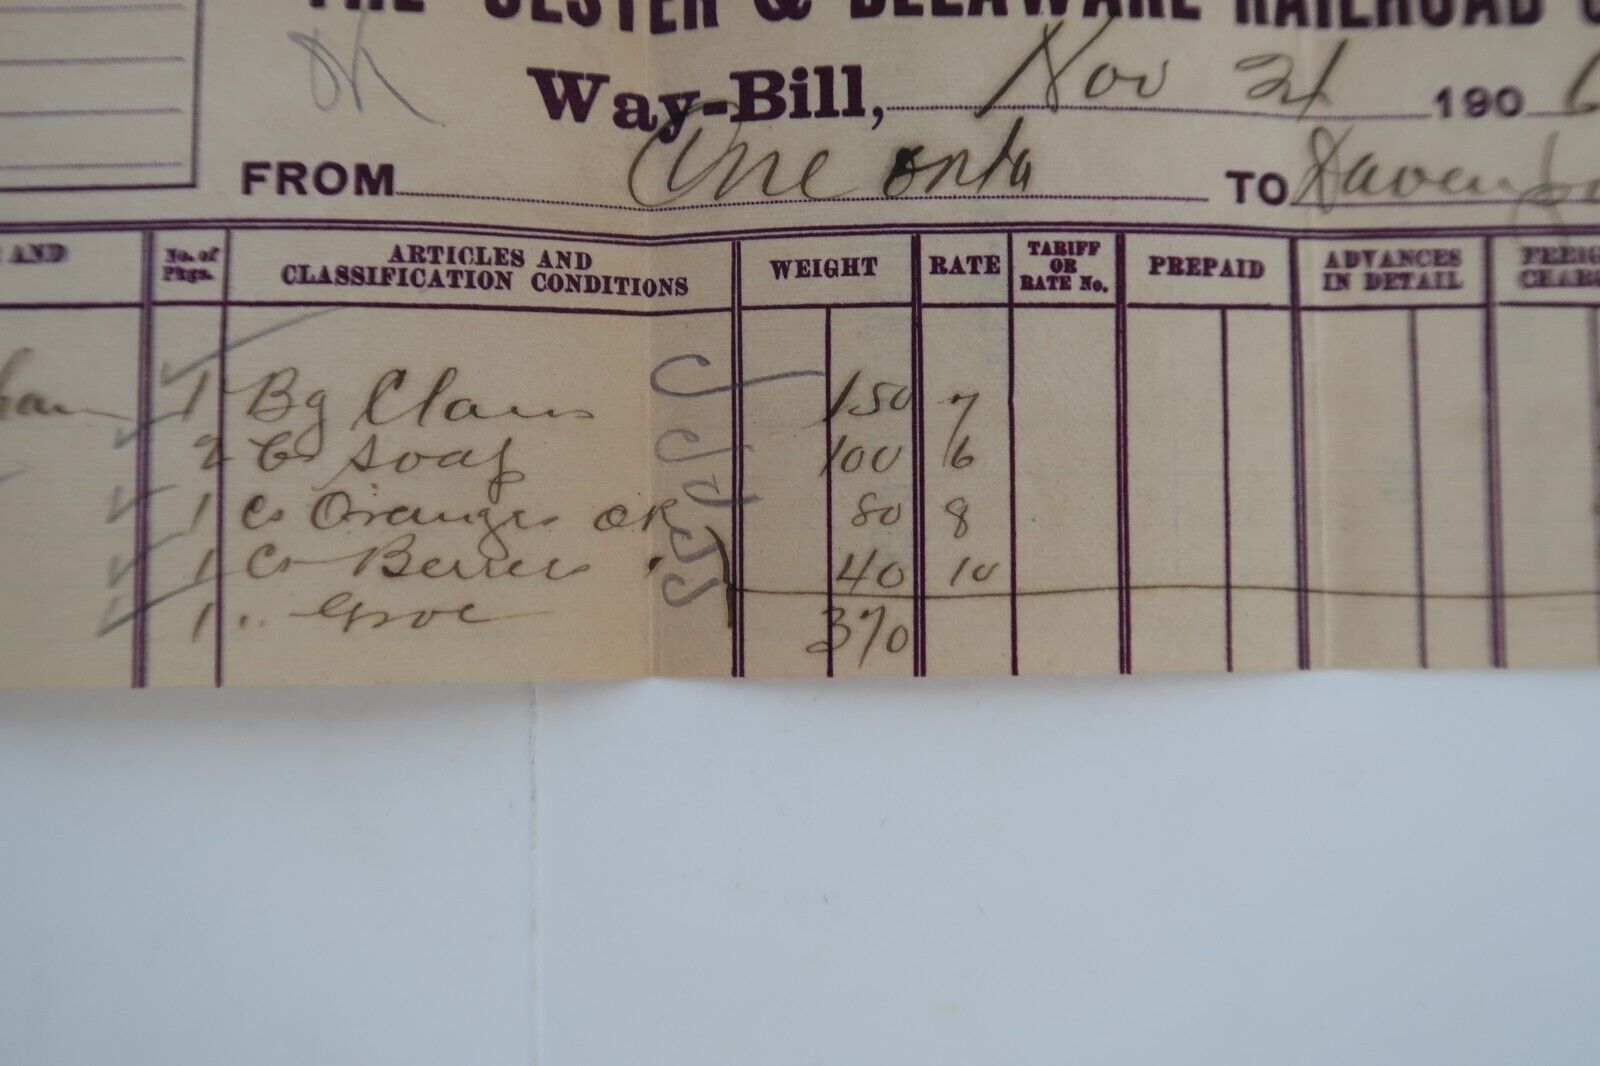 THE ULSTER & DELAWARE RAILROAD
OK
Way-Bill, Nov 21 190 6
FROM Oneonta TO Davenpo
AND
No. of Pkgs.
ARTICLES AND CLASSIFICATION CONDITIONS
WEIGHT
RATE
TARIFF OR RATE No.
PREPAID
ADVANCES IN DETAIL
FREIG CHARG
1 Bg Clams 150 7
2 Cs Soap 100 6
1 Cs Oranges OK 80 8
1 Cs Berries " 40 10
1 " Groc 370